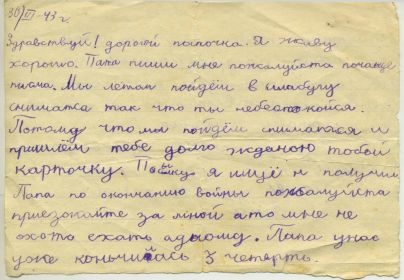 30/III-43 г.
Здравствуй! дорогой папочка. Я живу
хорошо. Папа пиши мне пожалуйста почаще
письма. Мы летом пойдём в
сниматса так что ты небеспокойся.
Потому что мы пойдём сниматся и
пришлём тебе долго жданою тобой
карточку. я ищё н получил
Папа по окончанию войны пожалуйста
приезжайте за мной а то мне не
охота ехать адному. Папа унас
уже кончилась 3 четверть.